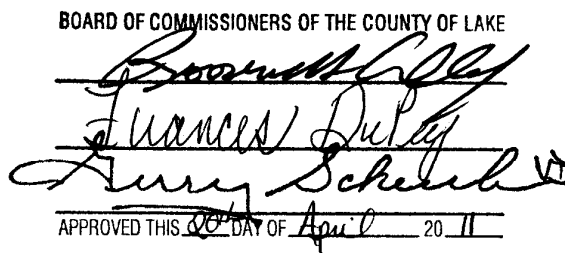 BOARD OF COMMISSIONERS OF THE COUNTY OF LAKE
Roosevelt Allen
Frances DuPey
Gerry Scheub
APPROVED THIS 20th DAY OF April 20 11